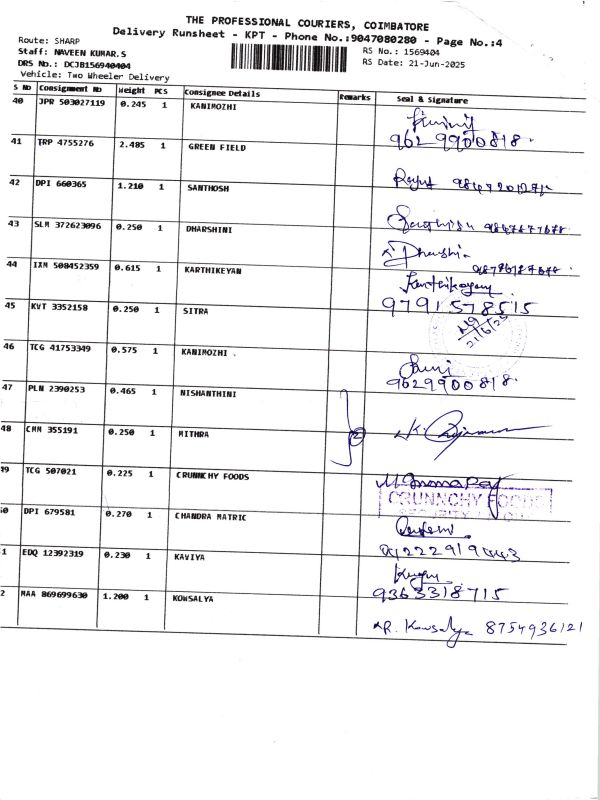 THE PROFESSIONAL COURIERS, COIMBATORE
Delivery Runsheet - KPT - Phone No.:9047080280 - Page No.:4
Route: SHARP
Staff: NAVEEN KUMAR.S
RS No.: 1569404
DRS No.: DCJB156940404
RS Date: 21-Jun-2025
Vehicle: Two Wheeler Delivery
S No Consignment No Weight PCS Consignee Details Remarks Seal & Signature
40 JPR 503027119 0.245 1 KANIMOZHI
9629900818.
41 TRP 4755276 2.485 1 GREEN FIELD
42 DPI 660365 1.210 1 SANTHOSH
43 SLM 372623096 0.250 1 DHARSHINI
Dharshi
44 IXM 508452359 0.615 1 KARTHIKEYAN
Karthikeyan
9791578515
45 KVT 3352158 0.250 1 SITRA
21/6/25
46 TCG 41753349 0.575 1 KANIMOZHI .
9629900818.
47 PLN 2390253 0.465 1 NISHANTHINI
48 CMM 355191 0.250 1 MITHRA
2
49 TCG 507021 0.225 1 CRUNNCHY FOODS
CRUNNCHY FOODS
SECURITY
50 DPI 679581 0.270 1 CHANDRA MATRIC
1 EDQ 12392319 0.230 1 KAVIYA
9363318715
2 MAA 869699630 1.200 1 KOWSALYA
R. Kowsalya 8754936121